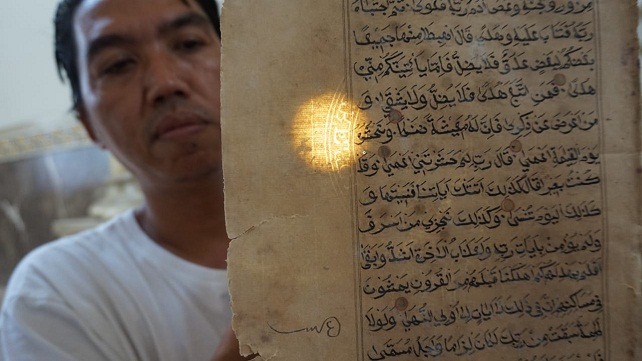 من ورق الجنة وعصى ادم ربه فغوى ثم اجتباه
ربه فتاب عليه وهدى قال اهبطا منها جميعا
بعضكم لبعض عدو فاما ياتينكم مني
هدى فمن اتبع هداي فلا يضل ولا يشقى و
من اعرض عن ذكري فان له معيشة ضنكا ونحشره
يوم القيمة اعمى قال رب لم حشرتني اعمى وقد
كنت بصيرا قال كذلك اتتك اياتنا فنسيتها و
كذلك اليوم تنسى وكذلك نجزي من اسرف
ولم يؤمن بايات ربه ولعذاب الاخرة اشد وابقى
افلم يهد لهم كم اهلكنا قبلهم من القرون يمشون
في مساكنهم ان في ذلك لايات لاولي النهى ولولا
كلمة سبقت من ربك لكان لزاما واجل مسمى